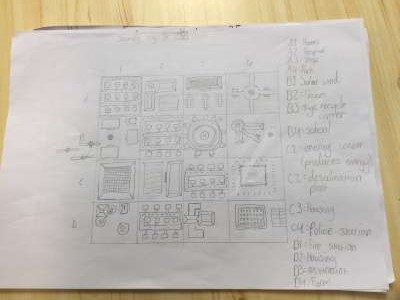 1 2 3 4
A
B
C
D
A1-Homes
A2 Hospital
A3 Shop
A4 Park
B1 Solar wind
B2-Houses
B3 recycle
center
B4 School
C1 energy center
(produces energy)
C2 - desalination
plant
C3-Housing
C4 Police-station
D1-Fire station
D2-Housing
D3-
D4 Farm